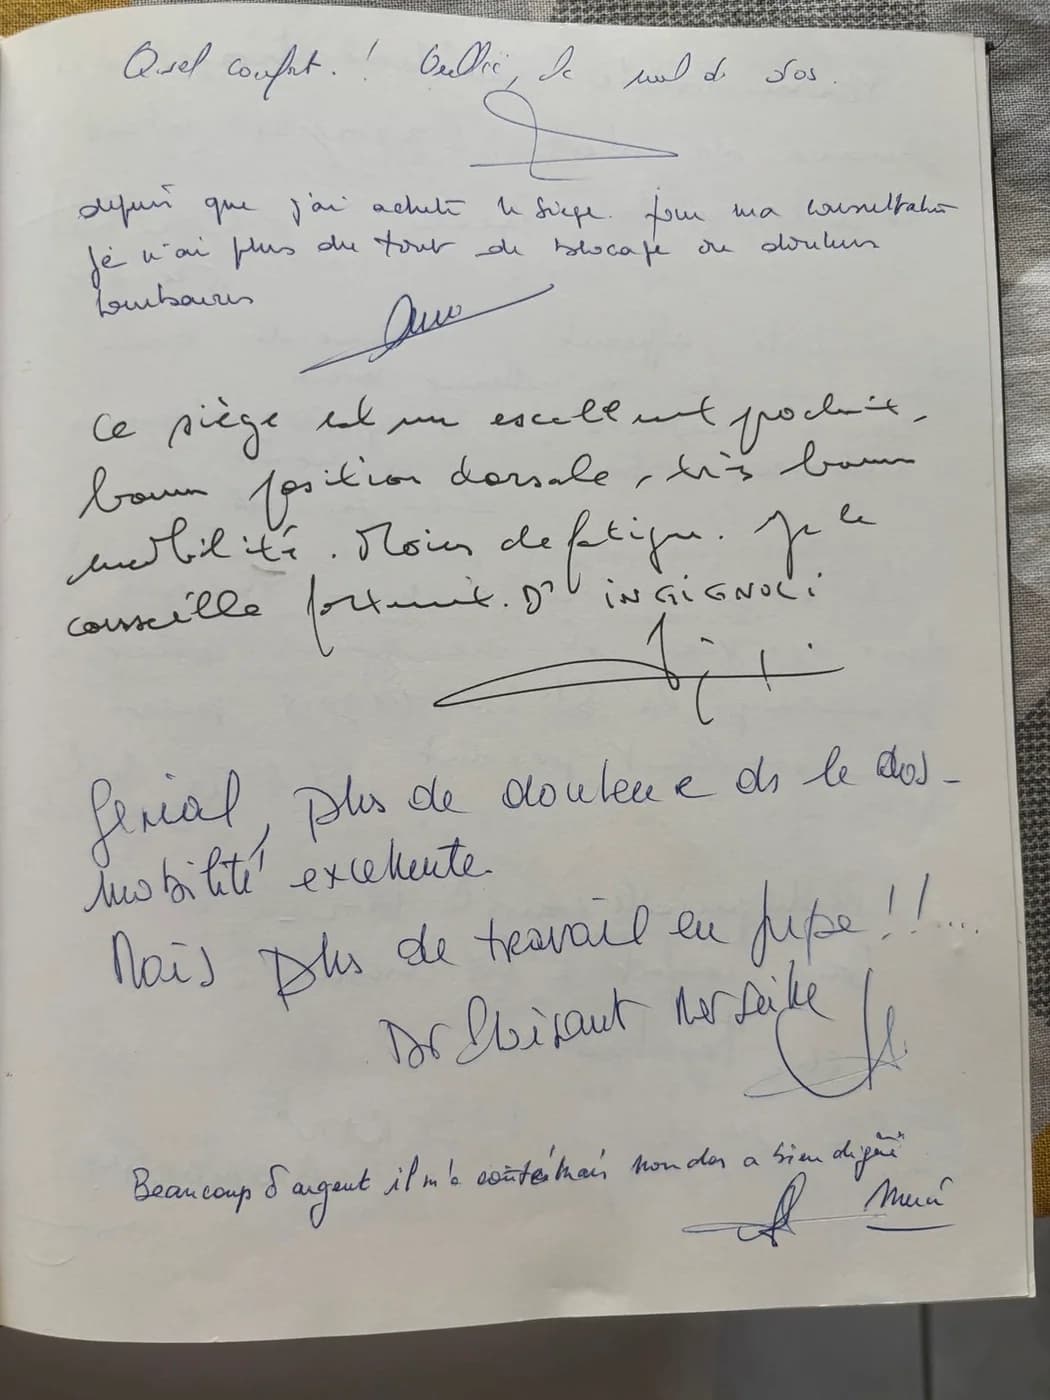 Quel confort. ! Oublié, le mal de dos.
depuis que j'ai acheté le siège. pour ma consultation
je n'ai plus du tout de blocage ou douleurs
lombaires
Ce siège est un excellent produit,
bonne position dorsale, très bonne
mobilité. Moins de fatigue. Je le
conseille fortement. Dr INGIGNOLI
Génial, plus de douleur ds le dos -
mobilité excellente.
Mais plus de travail en jupe !! ...
Dr
Beaucoup d'argent il m'a couté mais mon dos a bien digéré
Merci